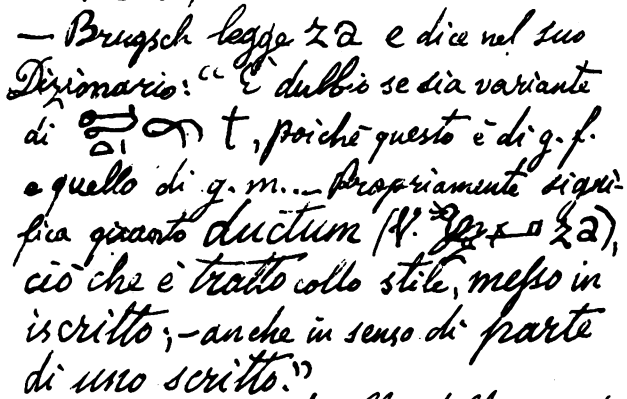 — Brugsch legge za e dice nel suo
Dizionario: “È dubbio se sia variante
di t, poichè questo è di g. f.
e quello di g. m... Propriamente signi-
fica quanto ductum (V. za),
ciò che è tratto collo stile, messo in
iscritto; – anche in senso di parte
di uno scritto.”